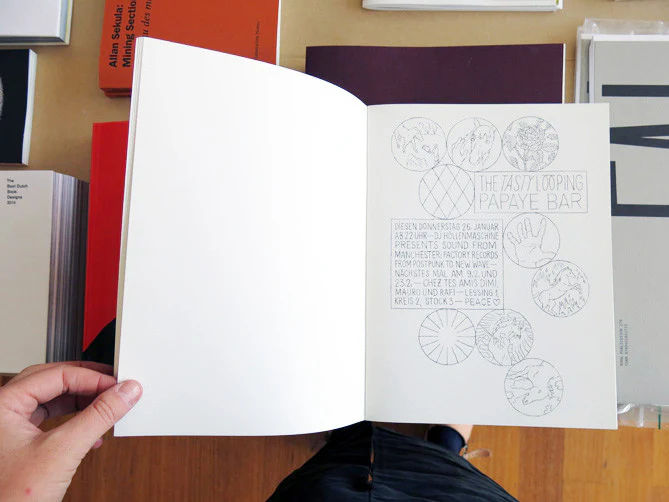 Allan Sekula:
Mining Section
The
Best Dutch
Book
Designs
THE TASTY LOOPING
PAPAYE BAR
DIESEN DONNERSTAG 26. JANUAR
AB 22 UHR — DJ HÖLLENMASCHINE
PRESENTS SOUND FROM
MANCHESTER: FACTORY RECORDS
FROM POSTPUNK TO NEW WAVE —
NÄCHSTES MAL AM 9.2. UND
23.2. — CHEZ TES AMIS DIMI,
MAURO UND RAFI — LESSING 1,
KREIS 2, STOCK 3 — PEACE ♡